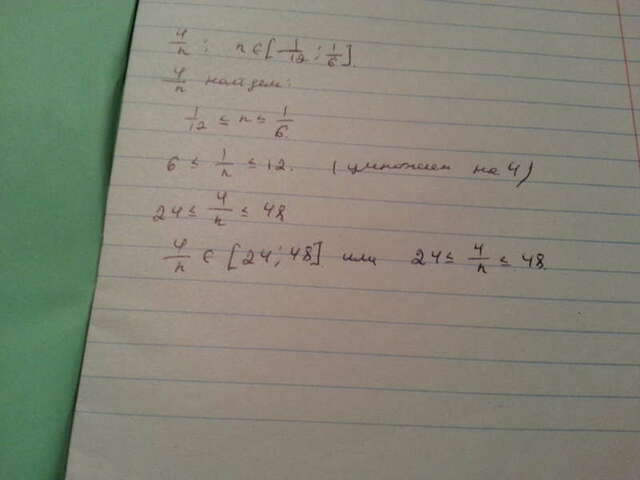 4/n ; n ∈ [1/12 ; 1/6].
4/n найдем:
1/12 ≤ n ≤ 1/6.
6 ≤ 1/n ≤ 12. (умножаем на 4)
24 ≤ 4/n ≤ 48
4/n ∈ [24; 48] или 24 ≤ 4/n ≤ 48.